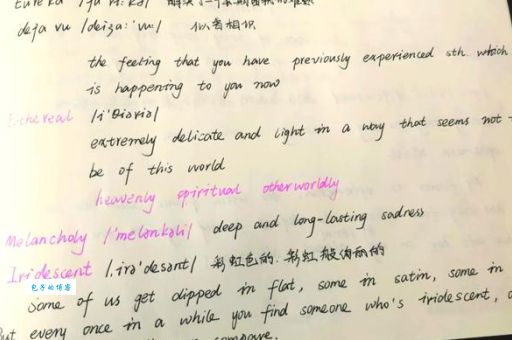 Eureka
deja vu /deiʒa:'vu:/ 似曾相识
the feeling that you have previously experienced sth. which
is happening to you now
Ethereal /i'θiəriəl/
extremely delicate and light in a way that seems not
be of this world
heavenly spiritual otherworldly
Melancholy /'melənkəli/ deep and long-lasting sadness
Iridescent /.irə'desənt/ 彩虹色的. 彩虹般绚丽的
包子的博客
Some of us get dipped in flat, some in satin, some in
But every once in a while you find someone who's iridescent,
compare.